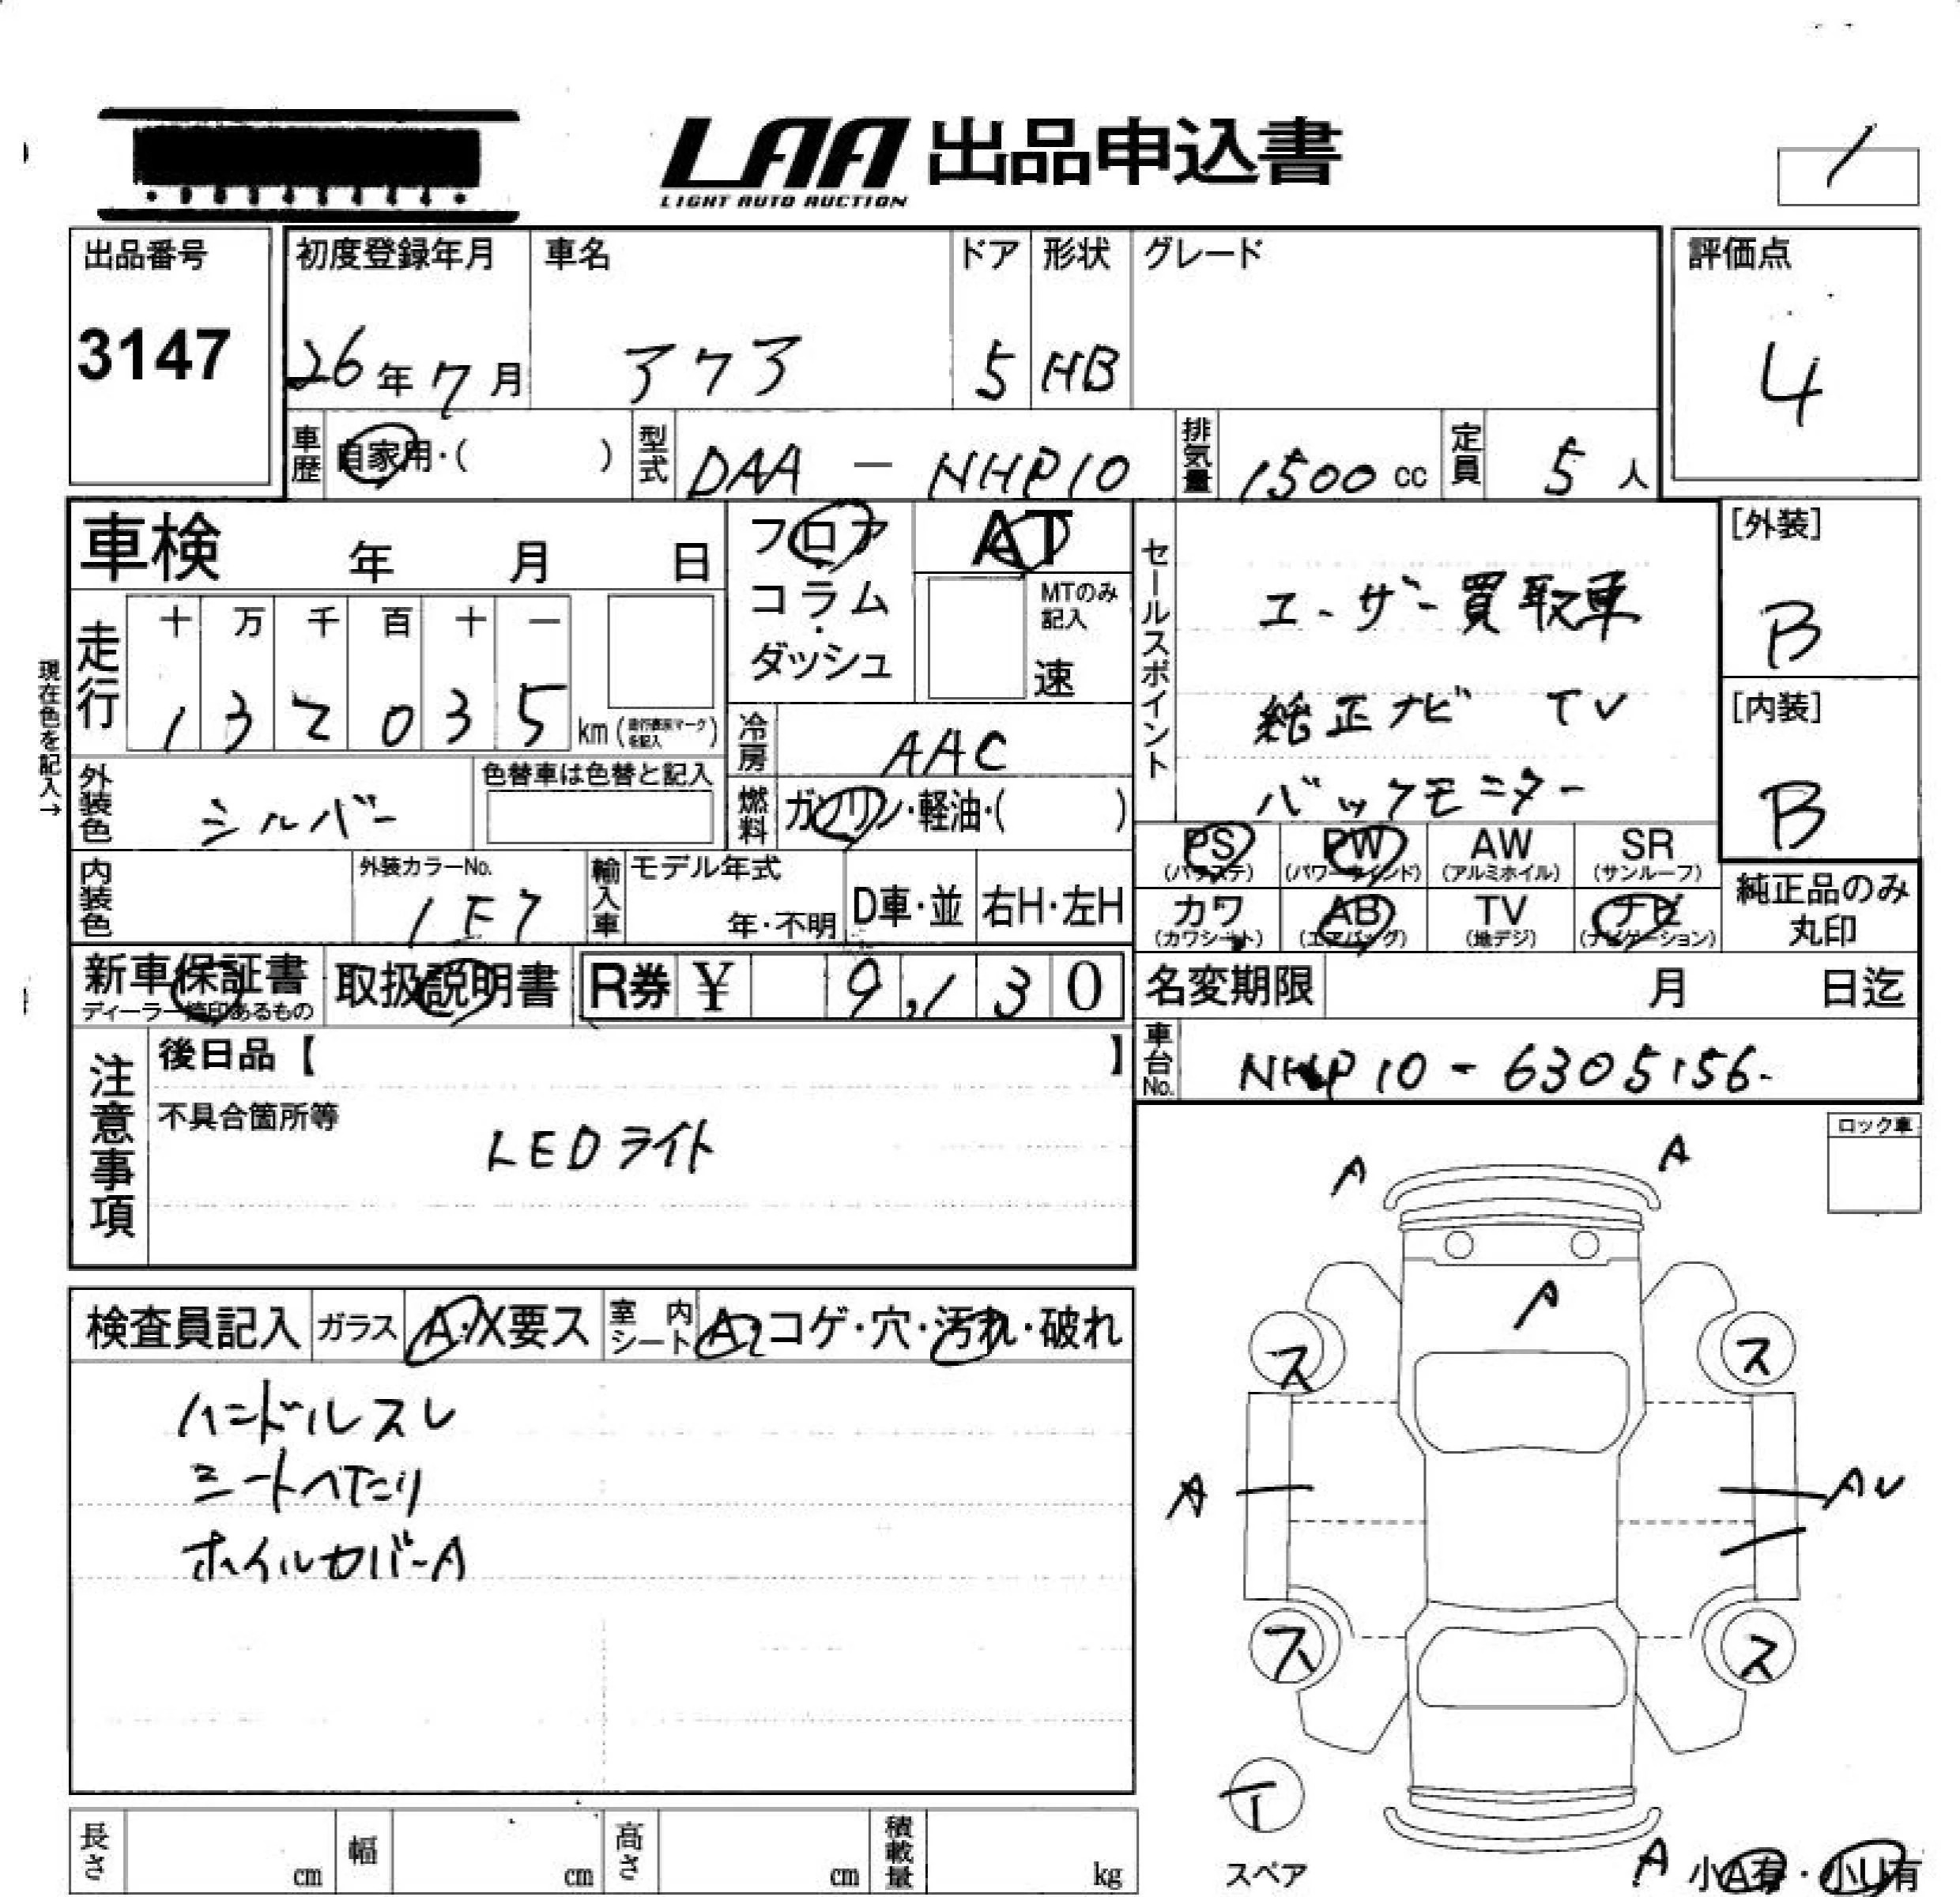 LAA 出品申込書
LIGHT AUTO AUCTION
出品番号
3147
初度登録年月
26年7月
車名
アクア
ドア
5
形状
HB
グレード
評価点
4
車歴
自家用・( )
型式
DAA - NHP10
排気量
1500 cc
定員
5人
車検 年 月 日
走行
十 万 千 百 十 一
1 3 2 0 3 5 km
現在色を記入→
フロア
・
コラム
・
ダッシュ
AT
MTのみ
記入
速
冷房
AAC
燃料
ガソリン・軽油・( )
外装色
シルバー
色替車は色替と記入
内装色
外装カラーNo.
1F7
輸入車
モデル年式
年・不明
D車・並
右H・左H
セールスポイント
ユーザー買取車
純正ナビ TV
バックモニター
[外装]
B
[内装]
B
PS
(パワステ)
PW
(パワーウインド)
AW
(アルミホイル)
SR
(サンルーフ)
カワ
(カワシート)
AB
(エアバッグ)
TV
(地デジ)
ナビ
(ナビゲーション)
純正品のみ
丸印
新車保証書
取扱説明書
R券 ¥ 9,130
名変期限 月 日迄
車台No.
NHP10-6305156-
注意事項
後日品【 】
不具合箇所等
LEDライト
検査員記入
ガラス
A・X要ス
室内シート
A・コゲ・穴・汚れ・破れ
ハンドルスレ
シートへたり
ホイルカバーA
ロック車
A
A
A
ス
ス
A
AU
ス
ス
スペア
A
小A有・小U有
長さ
cm
幅
cm
高さ
cm
積載量
kg